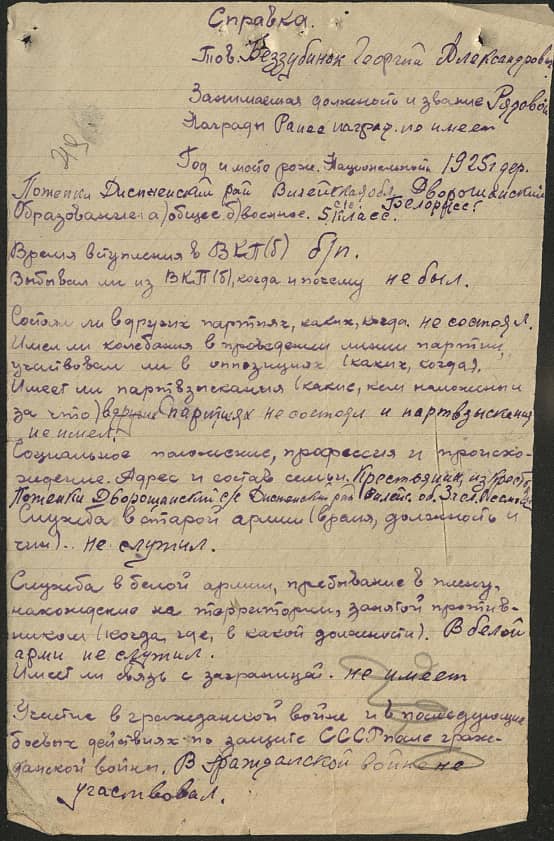 Справка.
Тов. Беззубинок Георгий Александрович
Занимаемая должность и звание Рядовой
Награды Ранее награ. не имеет
49
Год и место рожд. Национальность 1925г дер.
Потепки Диспненский рай Вилейская обл. Дворошанский
с/с. Белорусс.
Образование: а) общее б) военное. 5 класс.
Время вступления в ВКП(б) б/п.
Выбывал ли из ВКП(б), когда и почему не был.
Состоял ли в других партиях, каких, когда. не состоял.
Имел ли колебания в проведении линии партии,
участвовал ли в оппозициях (каких, когда).
Имеет ли партвзыскания (какие, кем наложены и
за что) в партиях не состоял и партвзыскания
не имел.
Социальное положение, профессия и происхо-
ждение. Адрес и состав семьи. Крестьянин, из крест.
Потепки Дворошанский с/с Диспненский рай Вилейс. об. 3 чел.
Служба в старой армии (время, должность и
чин). не служил.
Служба в белой армии, пребывание в плену,
нахождение на территории, занятой против-
ником (когда, где, в какой должности). В белой
арми не служил.
Имеет ли связь с заграницей. не имеет
Участие в гражданской войне и в последующие
боевых действиях по защите СССР после граж-
данской войны. В гражданской войне не
участвовал.